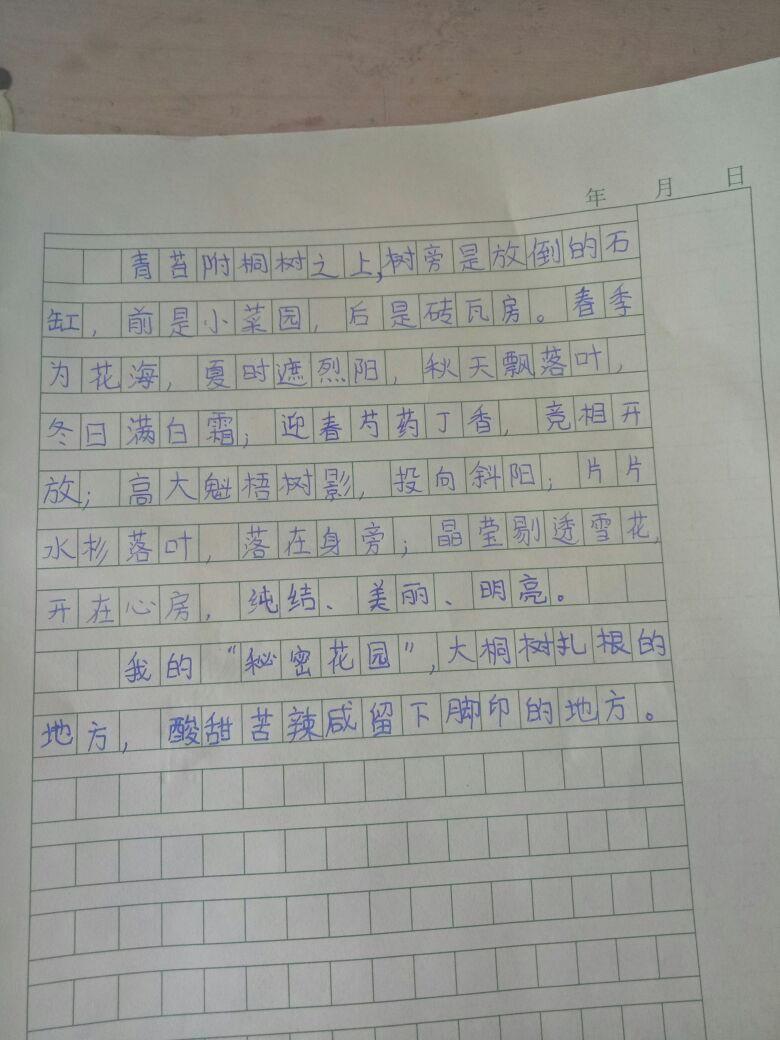 年 月 日
青苔附桐树之上,树旁是放倒的石
缸，前是小菜园，后是砖瓦房。春季
为花海，夏时遮烈阳，秋天飘落叶，
冬日满白霜；迎春芍药丁香，竞相开
放；高大魁梧树影，投向斜阳；片片
水杉落叶，落在身旁；晶莹剔透雪花，
开在心房，纯结、美丽、明亮。
我的“秘密花园”，大桐树扎根的
地方，酸甜苦辣咸留下脚印的地方。